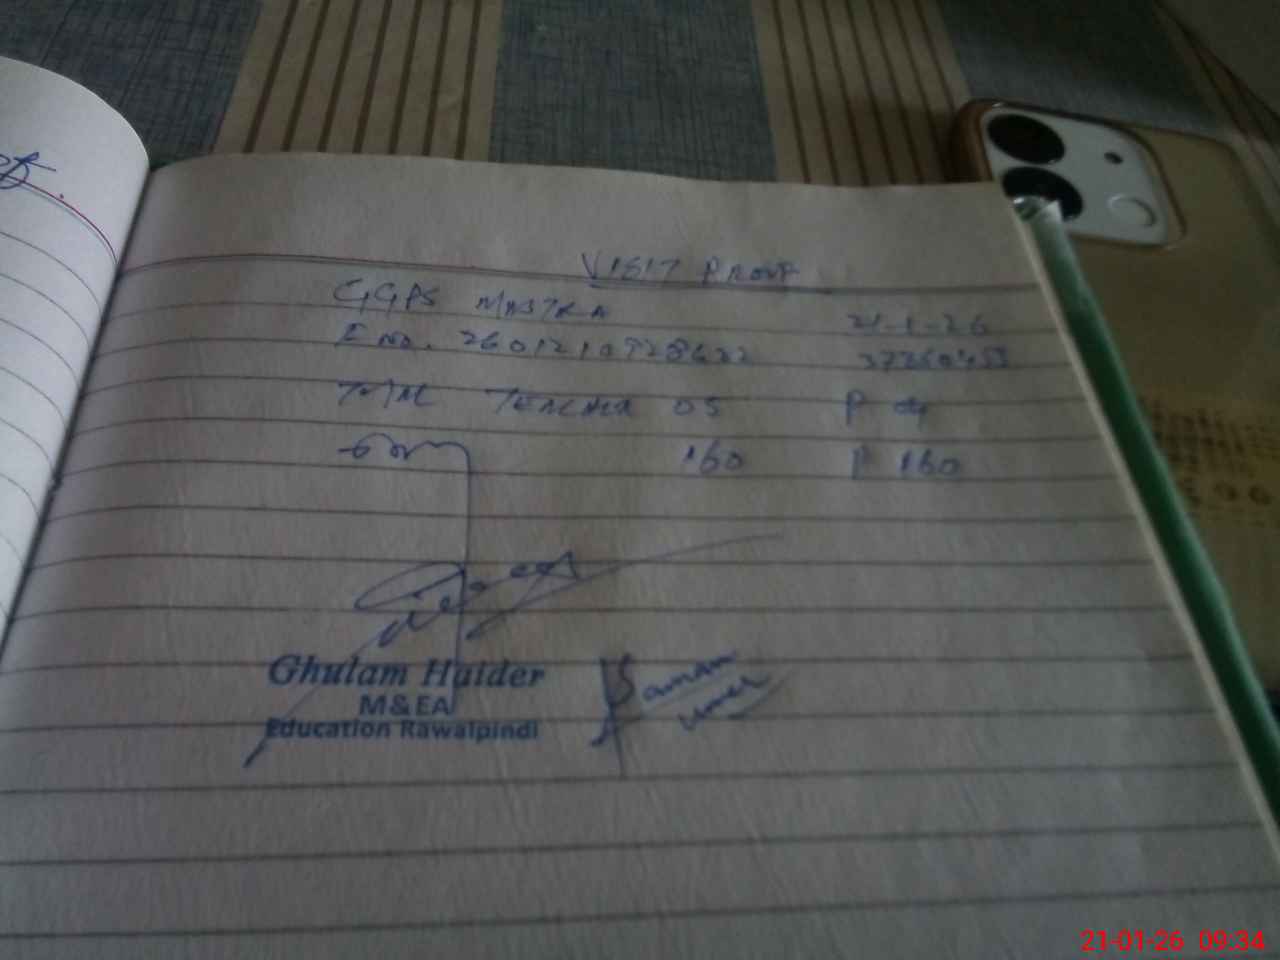 VISIT PROOF
GGPS 21-1-26
E NO. 37260455
TOTAL TEACHER 05 P 04
160 P 160
Ghulam Haider
M&EA
Education Rawalpindi
Saman
Umer
21-01-26 09:34